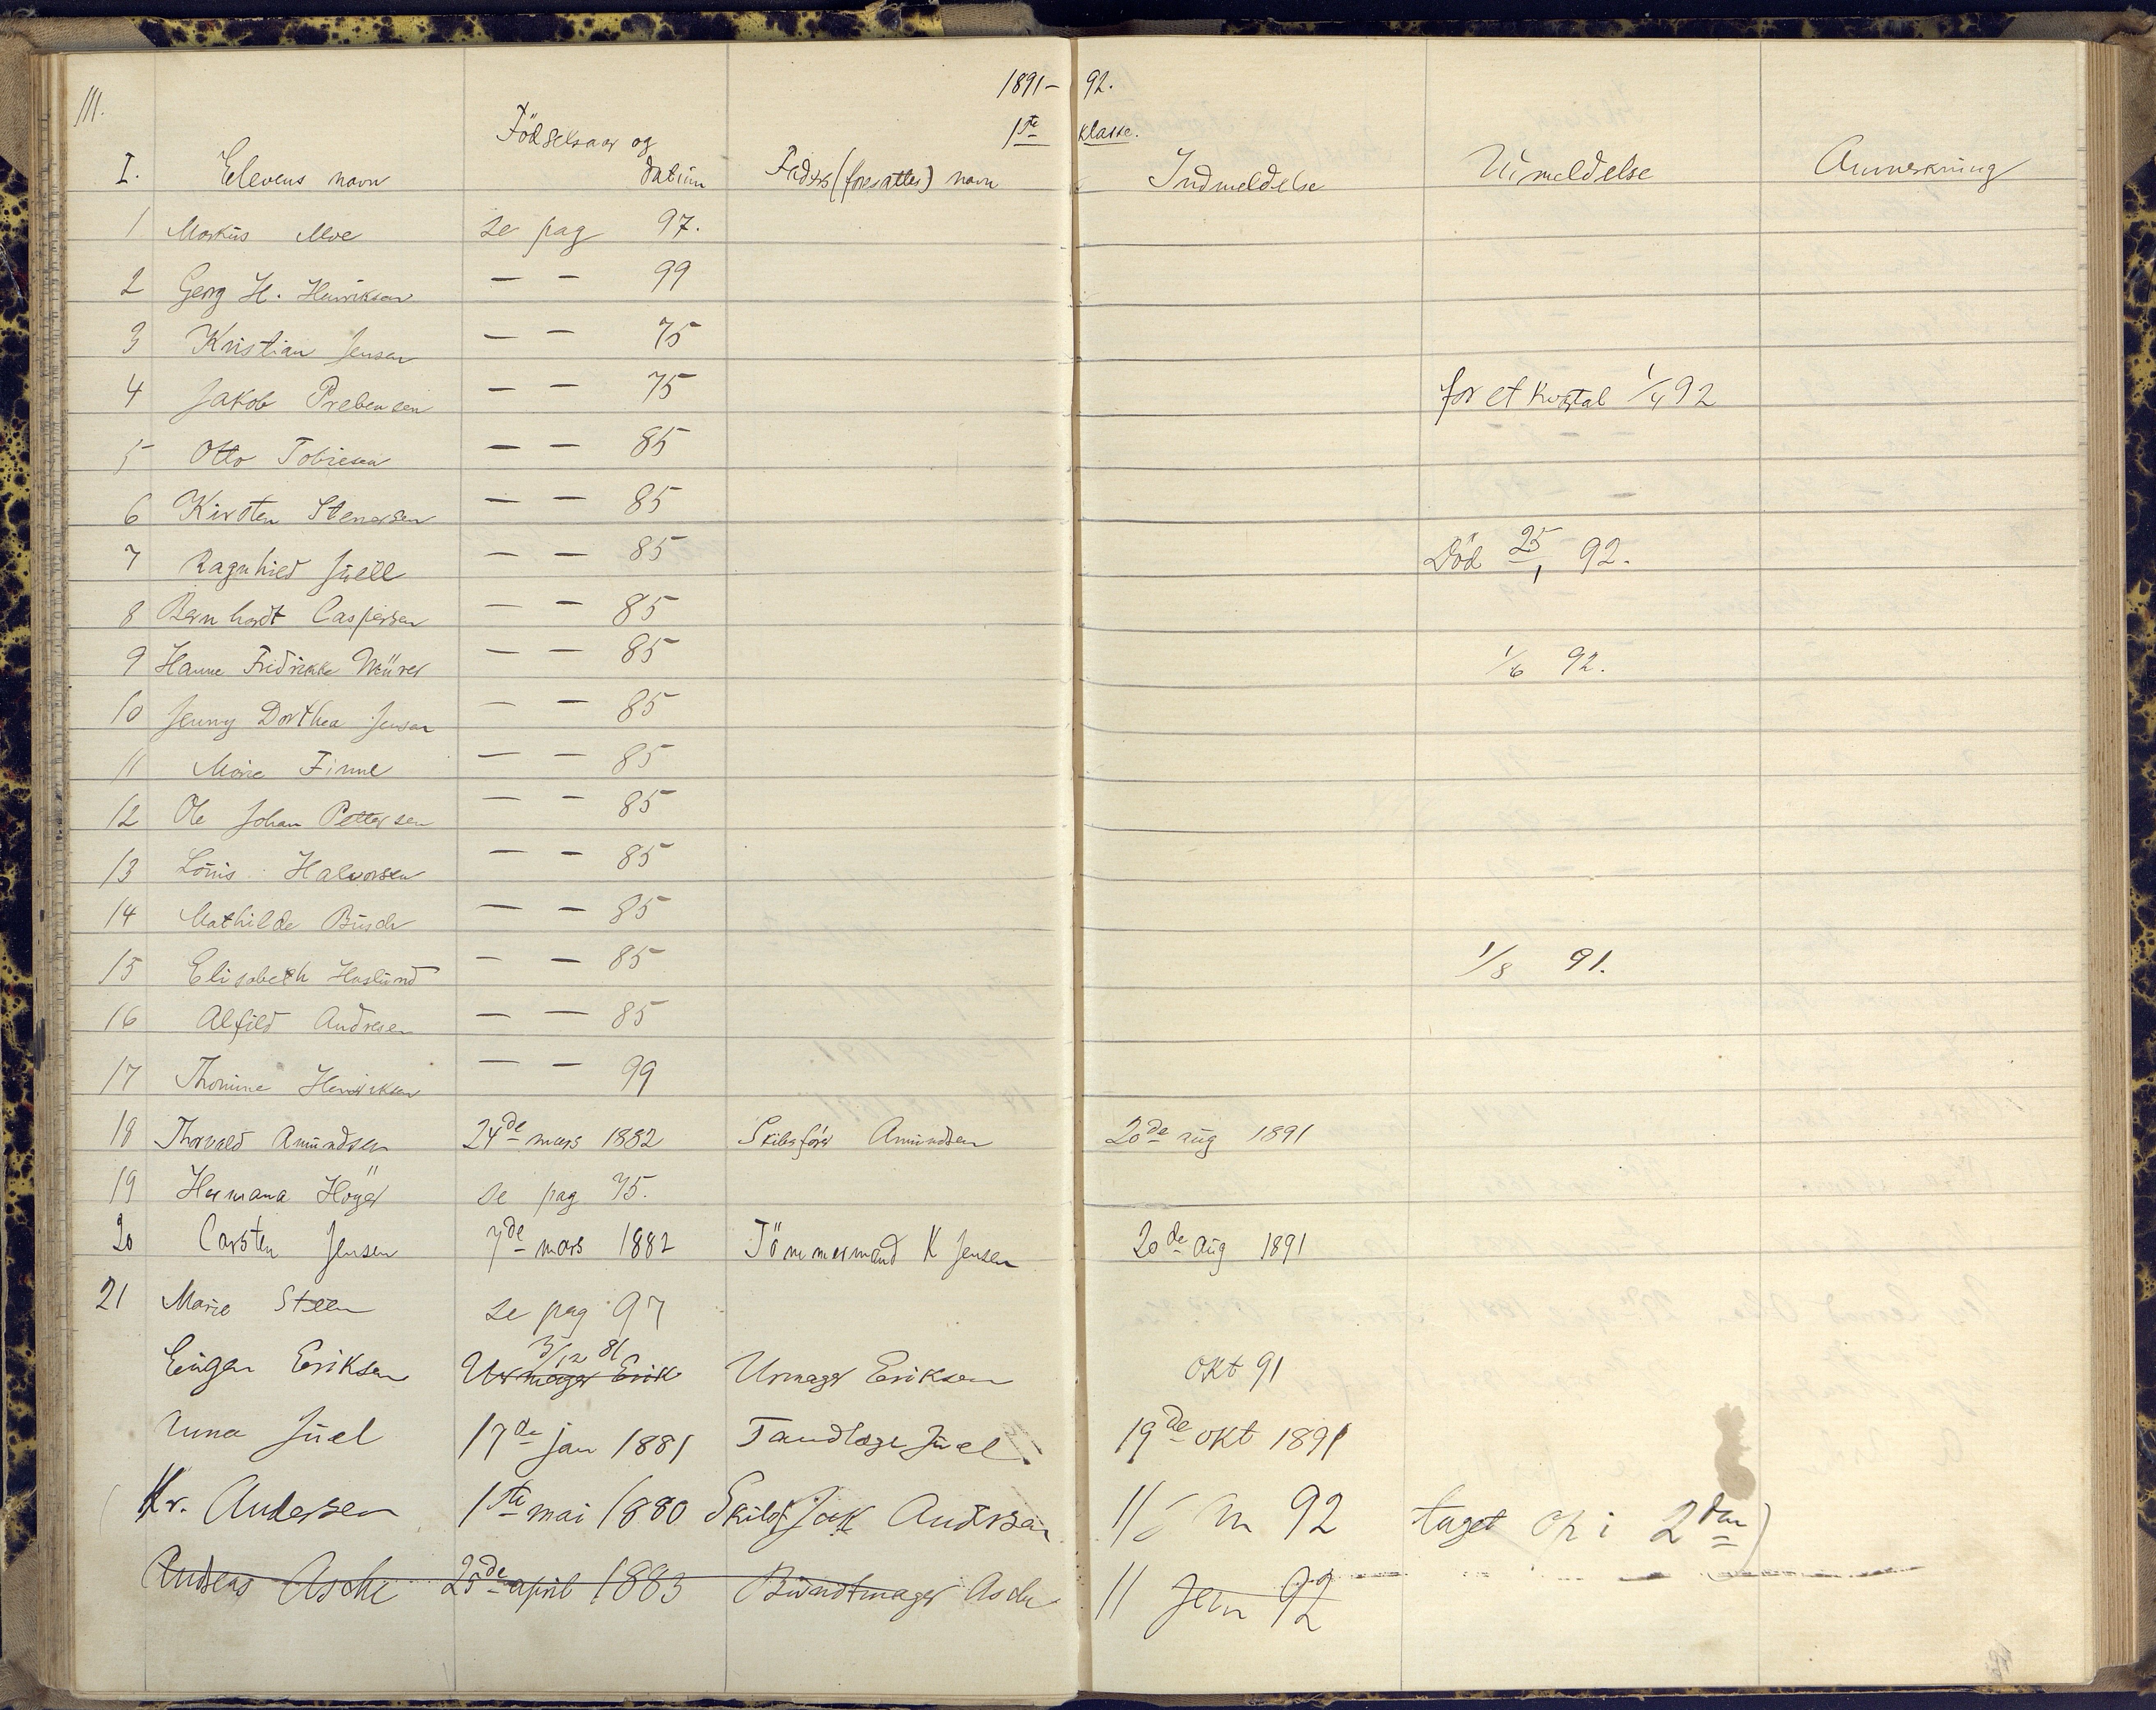 111.
1891–92.
1ste klasse.
I. Elevens navn Födselsaar og datum Faders (foresattes) navn Indmeldelse Utmeldelse Anmerkning
1 Markus Moe se pag 97.
2 Georg H. Henriksen — — 99
3 Kristian Jensen — — 75
4 Jakob Prebensen — — 75 for et kvartal 1/4 92
5 Otto Tobiesen — — 85
6 Kirsten Stenersen — — 85
7 Ragnhild Juell — — 85 Död 25/1 92.
8 Bernhardt Caspersen — — 85
9 Hanne Fredrikke — — 85 1/6 92.
10 Jenny Dorthea Jensen — — 85
11 Marie Finne — — 85
12 Ole Johan Pettersen — — 85
13 Louis Halvorsen — — 85
14 Mathilde Busch — — 85
15 Elisabeth Haslund — — 85 1/8 91.
16 Alfild Andresen — — 85
17 Thomine Henriksen — — 99
18 Thorvald Amundsen 24de mars 1882 Skibsförer Amundsen 20de aug 1891
19 Hermana Höyer se pag 75.
20 Carsten Jensen 7de mars 1882 Tömmermand K Jensen 20de aug 1891
21 Marie Steen se pag 97
Eugen Eriksen Urmager Erik 3/12 81 Urmager Eriksen okt 91
Anna Juel 17de jan 1881 Tandlæge Juel 19de okt 1891
Kr. Andersen 1ste mai 1880 Skibsf Jak Andersen 11 92 taget op i 2den)
Andreas Asche 25de april 1883 Bundtmager Asche 11 Jan 92